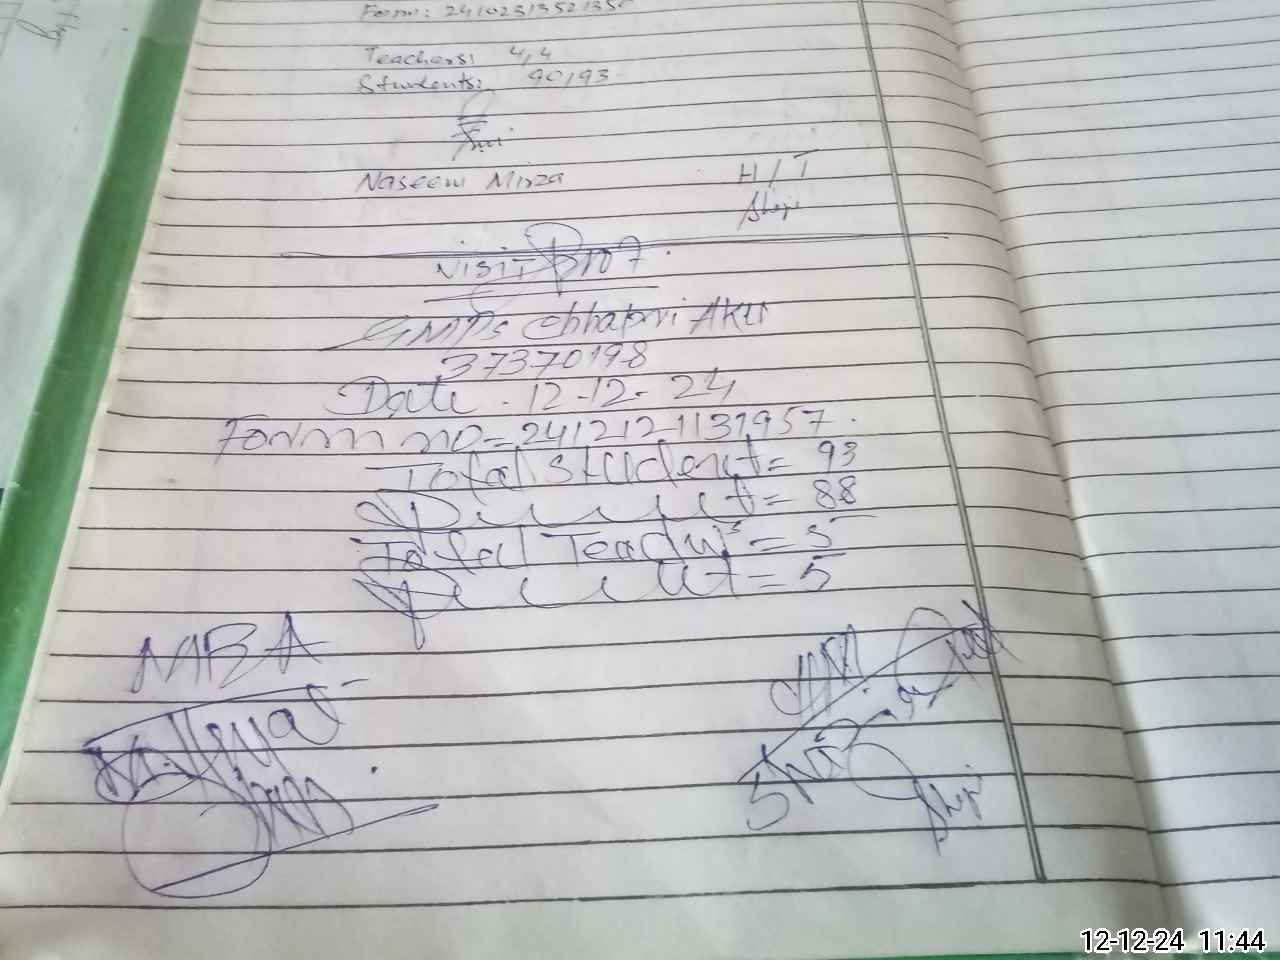 Form: 24102313521350
Teachers: 4,4
Students: 90,93
Naseem Mirza H/T
Visit Prof
GMPS Chhabri AKU
37370198
Date . 12-12-24
Form no = 2412121131957.
Total Student = 93
Present = 88
Total Teachers = 5
Present = 5
MBA
12-12-24 11:44